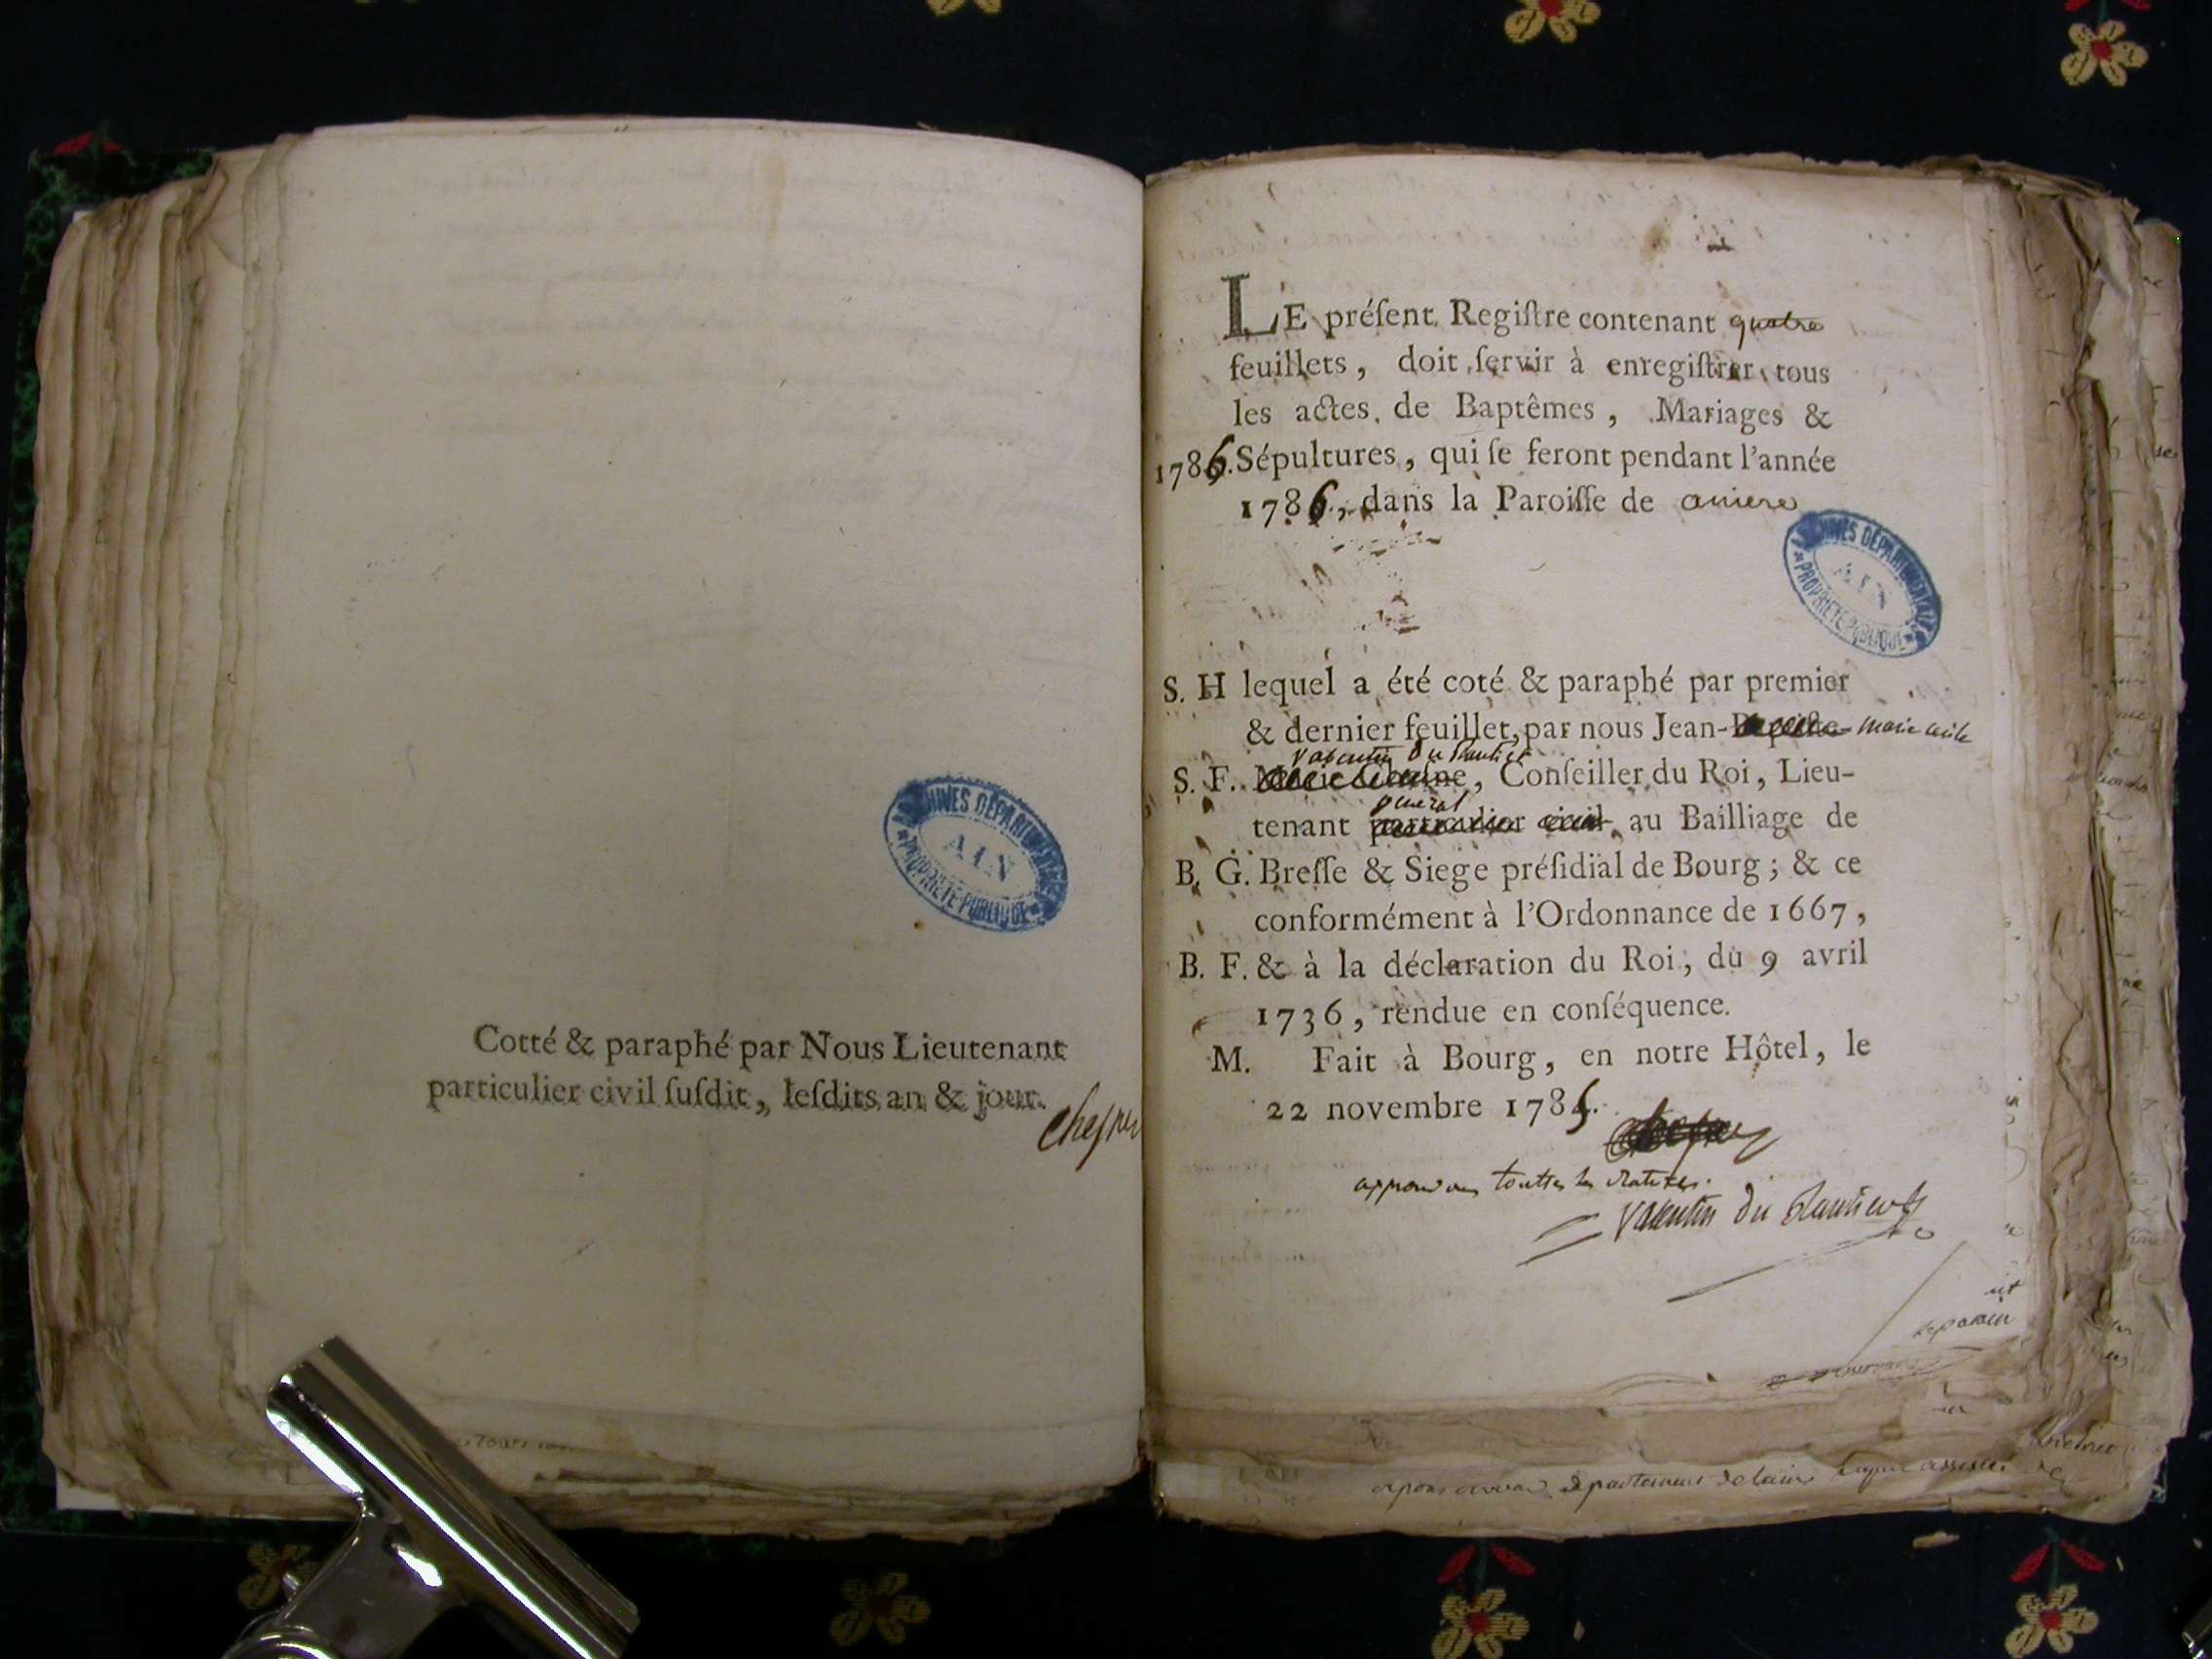 Cotté & paraphé par Nous Lieutenant
particulier civil ſuſdit, leſdits an & jour.
Cheſne
ARCHIVES DÉPARTEMENTALES
AIN
PROPRIÉTÉ PUBLIQUE
LE préſent Regiſtre contenant quatre
feuillets, doit ſervir à enregiſtrer tous
les actes de Baptêmes, Mariages &
1786. Sépultures, qui ſe feront pendant l'année
1786, dans la Paroiſſe de
ARCHIVES DÉPARTEMENTALES
AIN
PROPRIÉTÉ PUBLIQUE
S. H lequel a été coté & paraphé par premier
& dernier feuillet, par nous Jean-Baptiste marie
valentin Du Plantier
S. F. , Conſeiller du Roi, Lieu-
general
tenant particulier civil au Bailliage de
B. G. Breſſe & Siege préſidial de Bourg; & ce
conformément à l'Ordonnance de 1667,
B. F. & à la déclaration du Roi, du 9 avril
1736, rendue en conſéquence.
M. Fait à Bourg, en notre Hôtel, le
22 novembre 1785.
approuvons touttes les ratures.
Valentin du Plantier